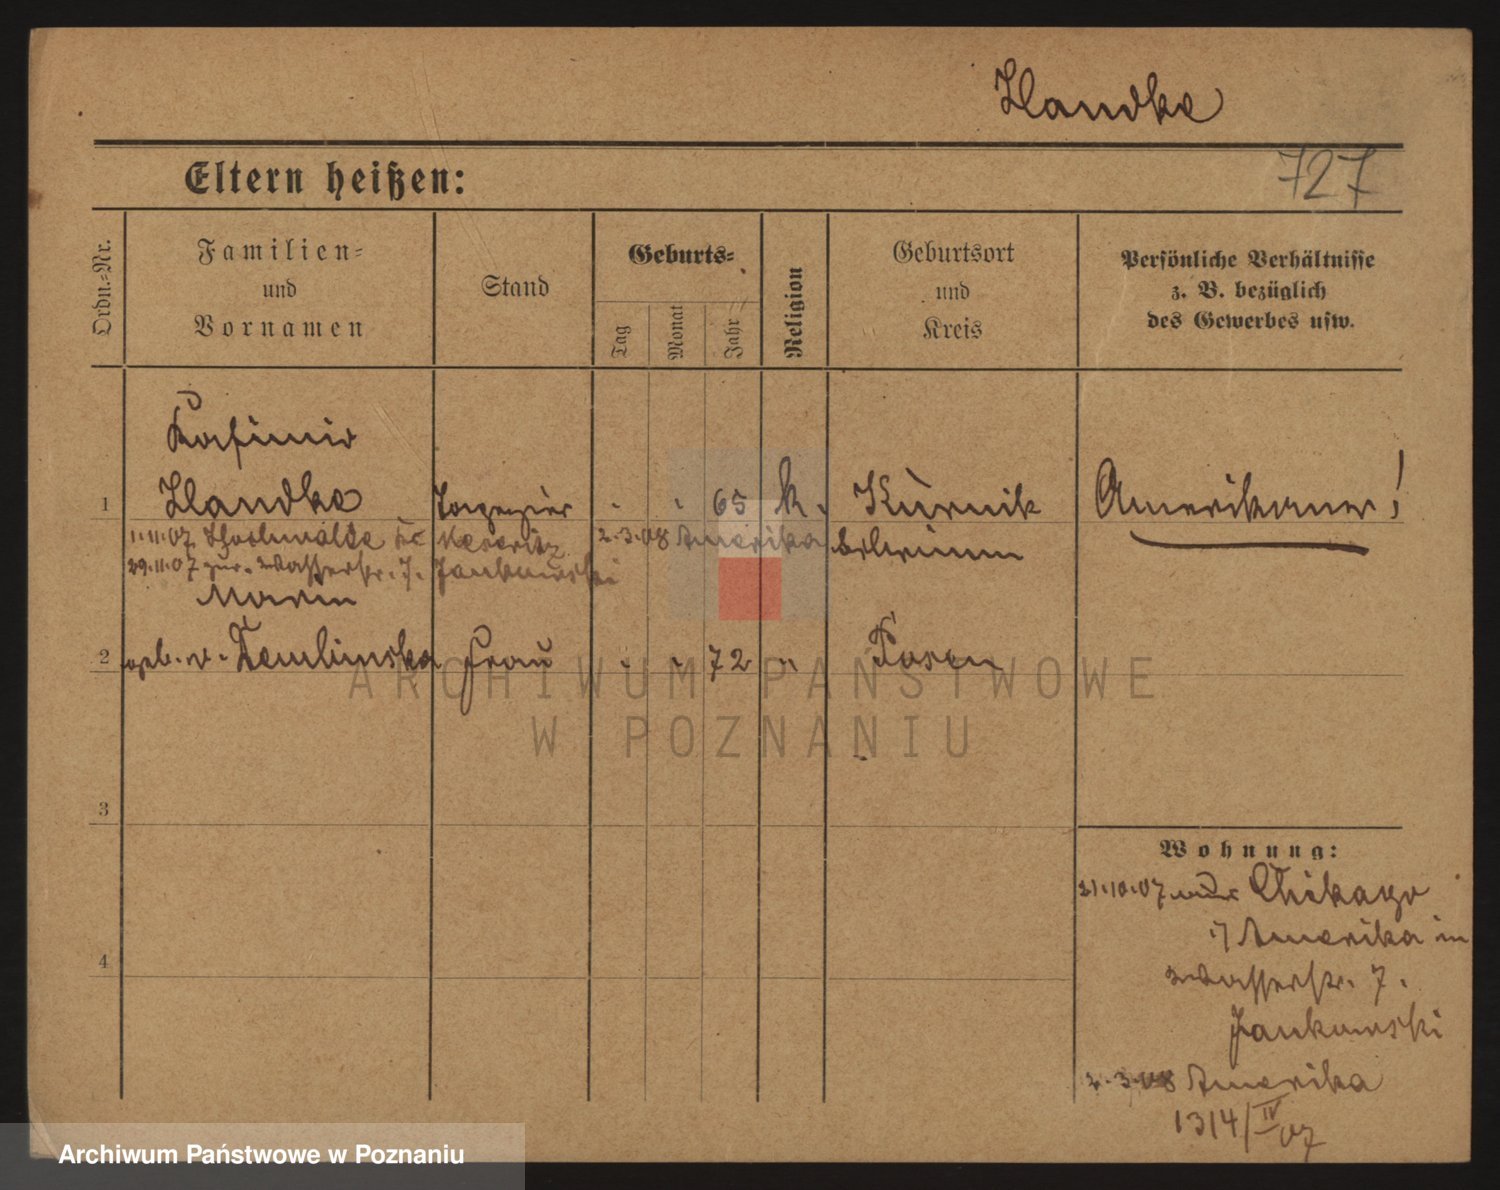 Handke
727
Eltern heißen:
Ordn.-Nr.
Familien-
und
Vornamen
Stand
Geburts-
Tag
Monat
Jahr
Religion
Geburtsort
und
Kreis
Persönliche Verhältnisse
z. B. bezüglich
des Gewerbes usw.
Kasimir
1 Handke Ingenieur - - 65 k. Kurnik Amerikaner!
1.11.07 2.3.08 Amerika
29.11.07 zur. Wasserstr. 7. Jankowski
Maria
2 geb. v. Frau - - 72 " Posen
3
4
Wohnung:
21.10.07 Chikago
Amerika in
Wasserstr. 7.
Jankowski
2.3.08 Amerika
1314/IV 07
ARCHIWUM PAŃSTWOWE
W POZNANIU
Archiwum Państwowe w Poznaniu